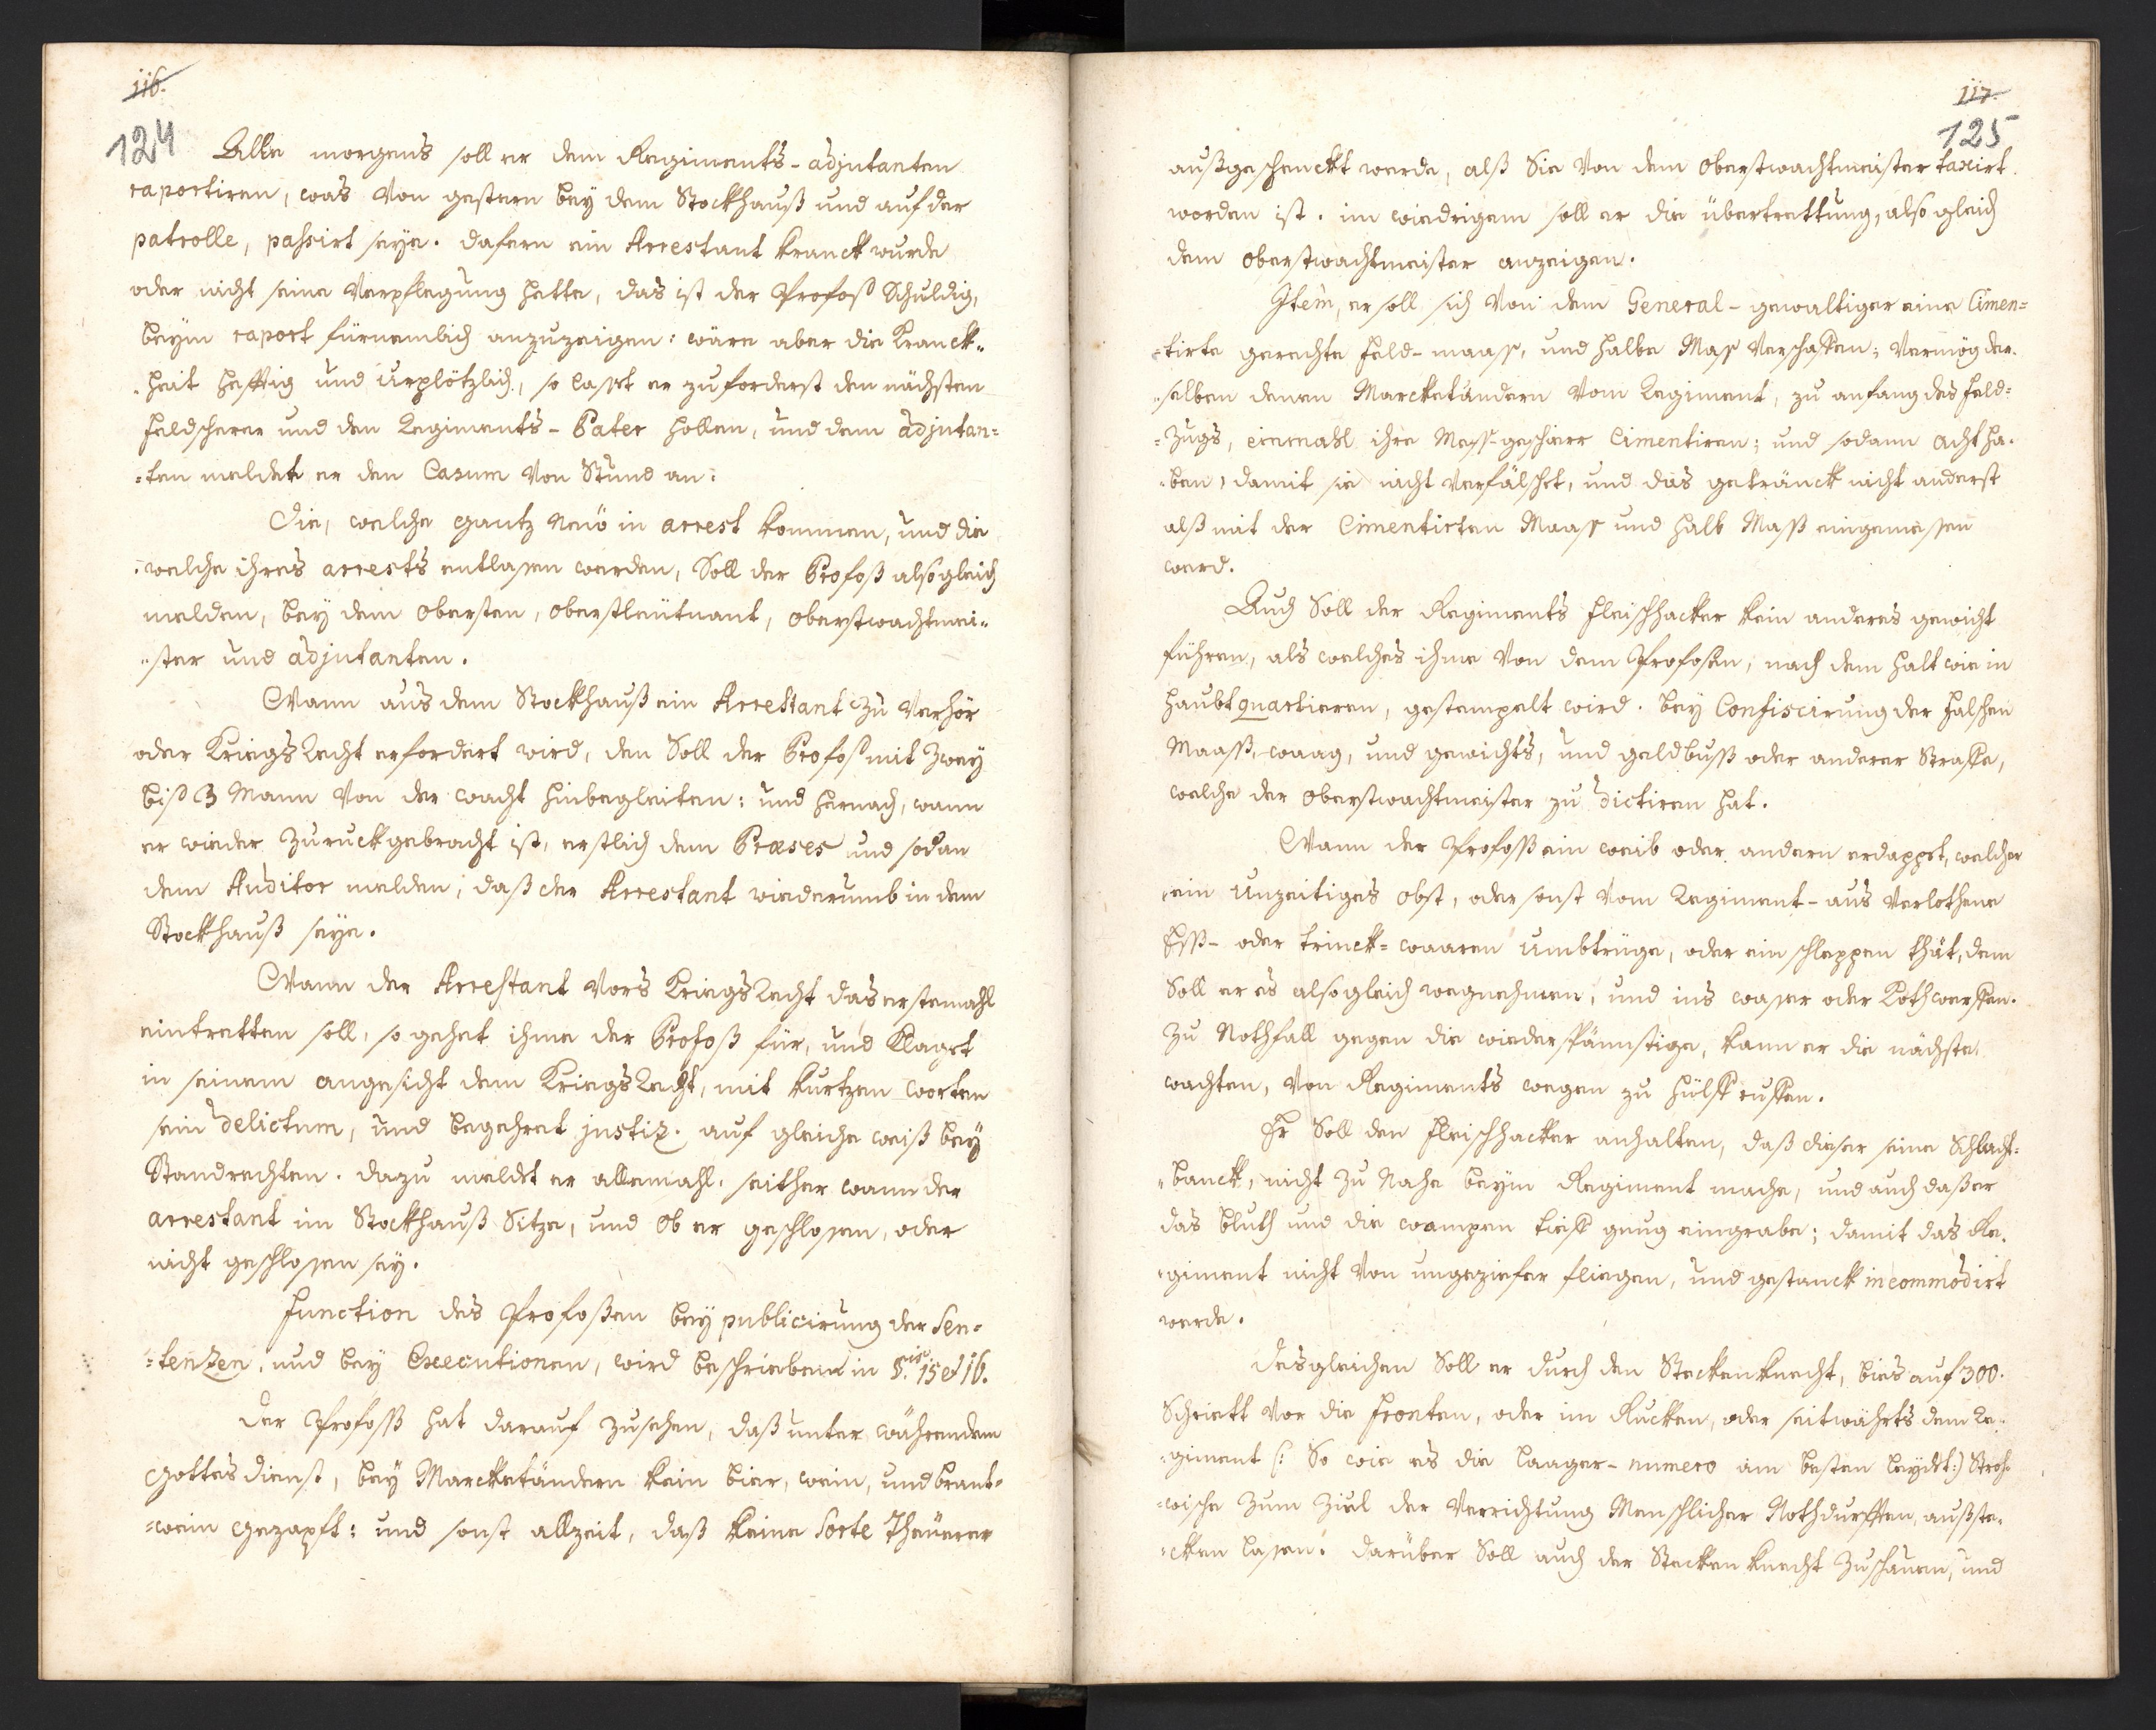 116.
124
Alle morgens soll er dem Regiments-adjutanten
raportiren, was von gestern bey dem Stockhauß und auf der
patrolle, passirt seye. dafern ein Arrestant kranck wurde
oder nicht seine Verpflegung hette, das ist der Profoß Schuldig,
beym raport fürnemlich anzuzeigen: wäre aber die Kranck„
„heit hefftig und urplötzlich, so lasset er zuforderst den nächsten
feldscherer und den Regiments-Pater hollen, und dem adjutan=
=ten meldet er den Casum von Stund an:
Die, welche gantz neü in arrest kommen, und die
welche ihres arrests entlassen werden, Soll der Profoß alsogleich
melden, bey dem obersten, oberstleütnant, oberstwachtmei„
„ster und adjutanten.
Wann aus dem Stockhauß ein Arrestant zu Verhör
oder KriegsRecht erfordert wird, den Soll der Profoß mit zwey
biß 3 Mann von der wacht hinbegleiten: und hernach, wann
er wieder zuruckgebracht ist, erstlich dem Præses und sodan
dem Auditor melden, daß der Arrestant wiederumb in dem
Stockhauß seye.
Wann der Arrestant vors KriegsRecht das erstemahl
eintretten soll, so gehet ihme der Profoß für, und klaget
in seinem angesicht dem KriegsRecht, mit kurtzen worten
sein delictum, und begehret justiz. auf gleiche weiß bey
Standrechten. dazu meldet er allemahl, seither wann der
arrestant im Stockhauß Sitze, und ob er geschlossen, oder
nicht geschlossen sey.
Function des Profoßen bey publicirung der Sen=
=tenzen, und bey Executionen, wird beschrieben in §.is 15 et 16.
Der Profoß hat darauf zusehen, daß unter währendem
Gottes dienst, bey Marcketändern kein bier, wein, und brant=
=wein gezapft: und sonst allzeit, daß keine Sorte Theüerer
117.
125
außgeschenckt werde, alß Sie von dem oberstwachtmeister taxirt
worden ist. im wiedrigem soll er die übertrettung, also gleich
dem oberstwachtmeister anzeigen.
Item, er soll sich von dem General-gewaltiger eine Cimen=
=tirte gerechte feld-maass, und halbe Mass verschaffen; vermög der„
„selben denen Marcketändern vom Regiment, zu anfang des feld=
=zugs, einmahl ihre Mess-geschierr Cimentiren; und sodann acht ha„
„ben, damit sie nicht verfälscht, und das getränck nicht anderst
alß mit der Cimentirten Maass und halb Maß eingemessen
werd.
Auch Soll der Regiments fleischhacker kein anderes gewicht
führen, als welches ihme von dem Profosen, nach dem halt wie in
haubtquartieren, gestempelt wird. bey Confiscirung der falschen
Maass, waag, und gewichts, und geldbuss oder anderer Straffe,
welche der oberstwachtmeister zu dictiren hat.
Wann der Profoß ein weib oder andern erdappet, welcher
ein unzeitiges obst, oder sonst vom Regiment-aus verbothene
Ess- oder trinck=waaren umbtrüge, oder ein schleppen thät, dem
Soll er es alsogleich wegnehmen, und ins wasser oder Koth werffen.
zu Nothfall gegen die wiederspännstige, kann er die nächste
wachten, von Regiments wegen zu hülff ruffen.
Er Soll den fleischhacker anhalten, daß dieser seine Schlacht=
„banck, nicht zu nahe beym Regiment mache, und auch daß er
das bluth und die wampen tieff genug eingrabe; damit das Re„
„giment nicht von ungeziefer fliegen, und gestanck incommodirt
werde.
Desgleichen Soll er durch den Steckenknecht, bies auf 300.
Schriett vor die fronten, oder im Rucken, oder seitwährts dem Re„
„giment (: So wie es die laager-numero am besten leydet:) Stroh=
=wische zum ziel der Verrichtung Menschlicher Nothdurfften, außste„
„cken lassen. darüber Soll auch der Stecken knecht zuschauen, und